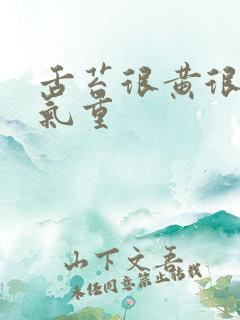 舌苔很黄很
气重
山下文吾
未经同意禁止转载